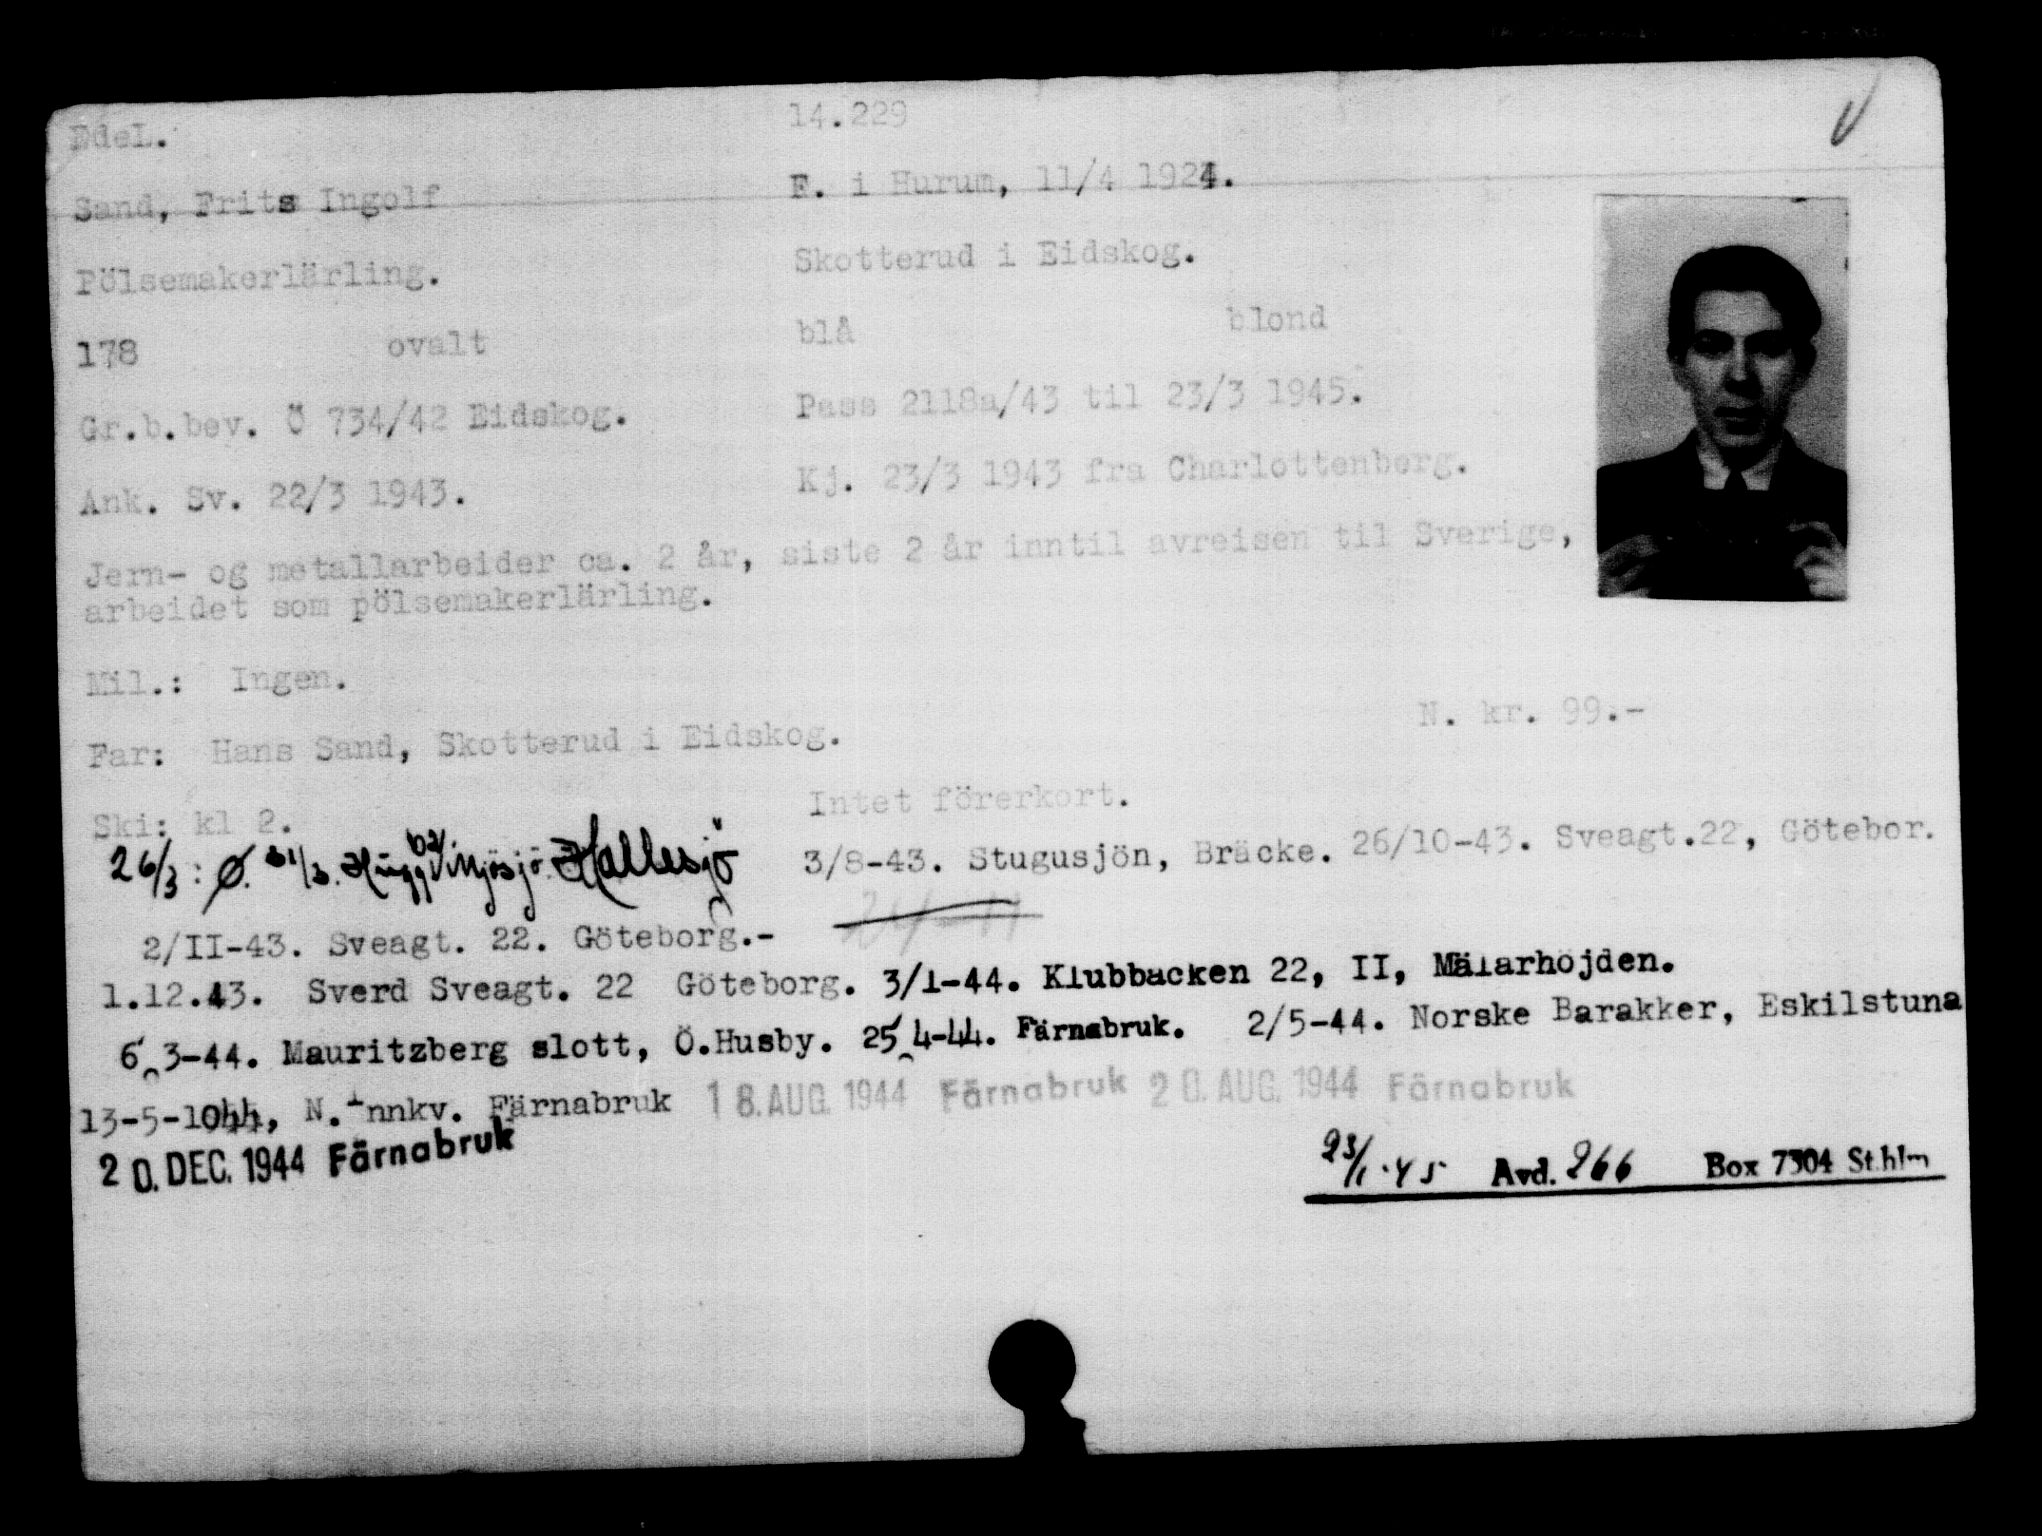 EdeL. 14.229
Sand, Frits Ingolf F. i Hurum, 11/4 1924.
Pölsemakerlärling. Skotterud i Eidskog.
178 ovalt blå blond
Gr.b.bev. Ö 734/42 Eidskog. Pass 2118a/43 til 23/3 1945.
Ank. Sv. 22/3 1943. Kj. 23/3 1943 fra Charlottenberg.
Jern- og metallarbeider ca. 2 år, siste 2 år inntil avreisen til Sverige,
arbeidet som pölsemakerlärling.
Mil.: Ingen.
N. kr. 99.-
Far: Hans Sand, Skotterud i Eidskog.
Ski: kl 2. Intet förerkort.
26/3: Ø. 31/3. Hallesjö 3/8-43. Stugusjön, Bräcke. 26/10-43. Sveagt.22, Götebor.
2/II-43. Sveagt. 22. Göteborg.-
1.12.43. Sverd Sveagt. 22 Göteborg. 3/1-44. Klubbacken 22, II, Mälarhöjden.
6/3-44. Mauritzberg slott, Ö.Husby. 25/4-44. Färnabruk. 2/5-44. Norske Barakker, Eskilstuna
13-5-1044, N.Innkv. Färnabruk 18. AUG. 1944 Färnabruk 20. AUG. 1944 Färnabruk
20. DEC. 1944 Färnabruk
23/1-45 Avd. 266 Box 7304 Sthlm